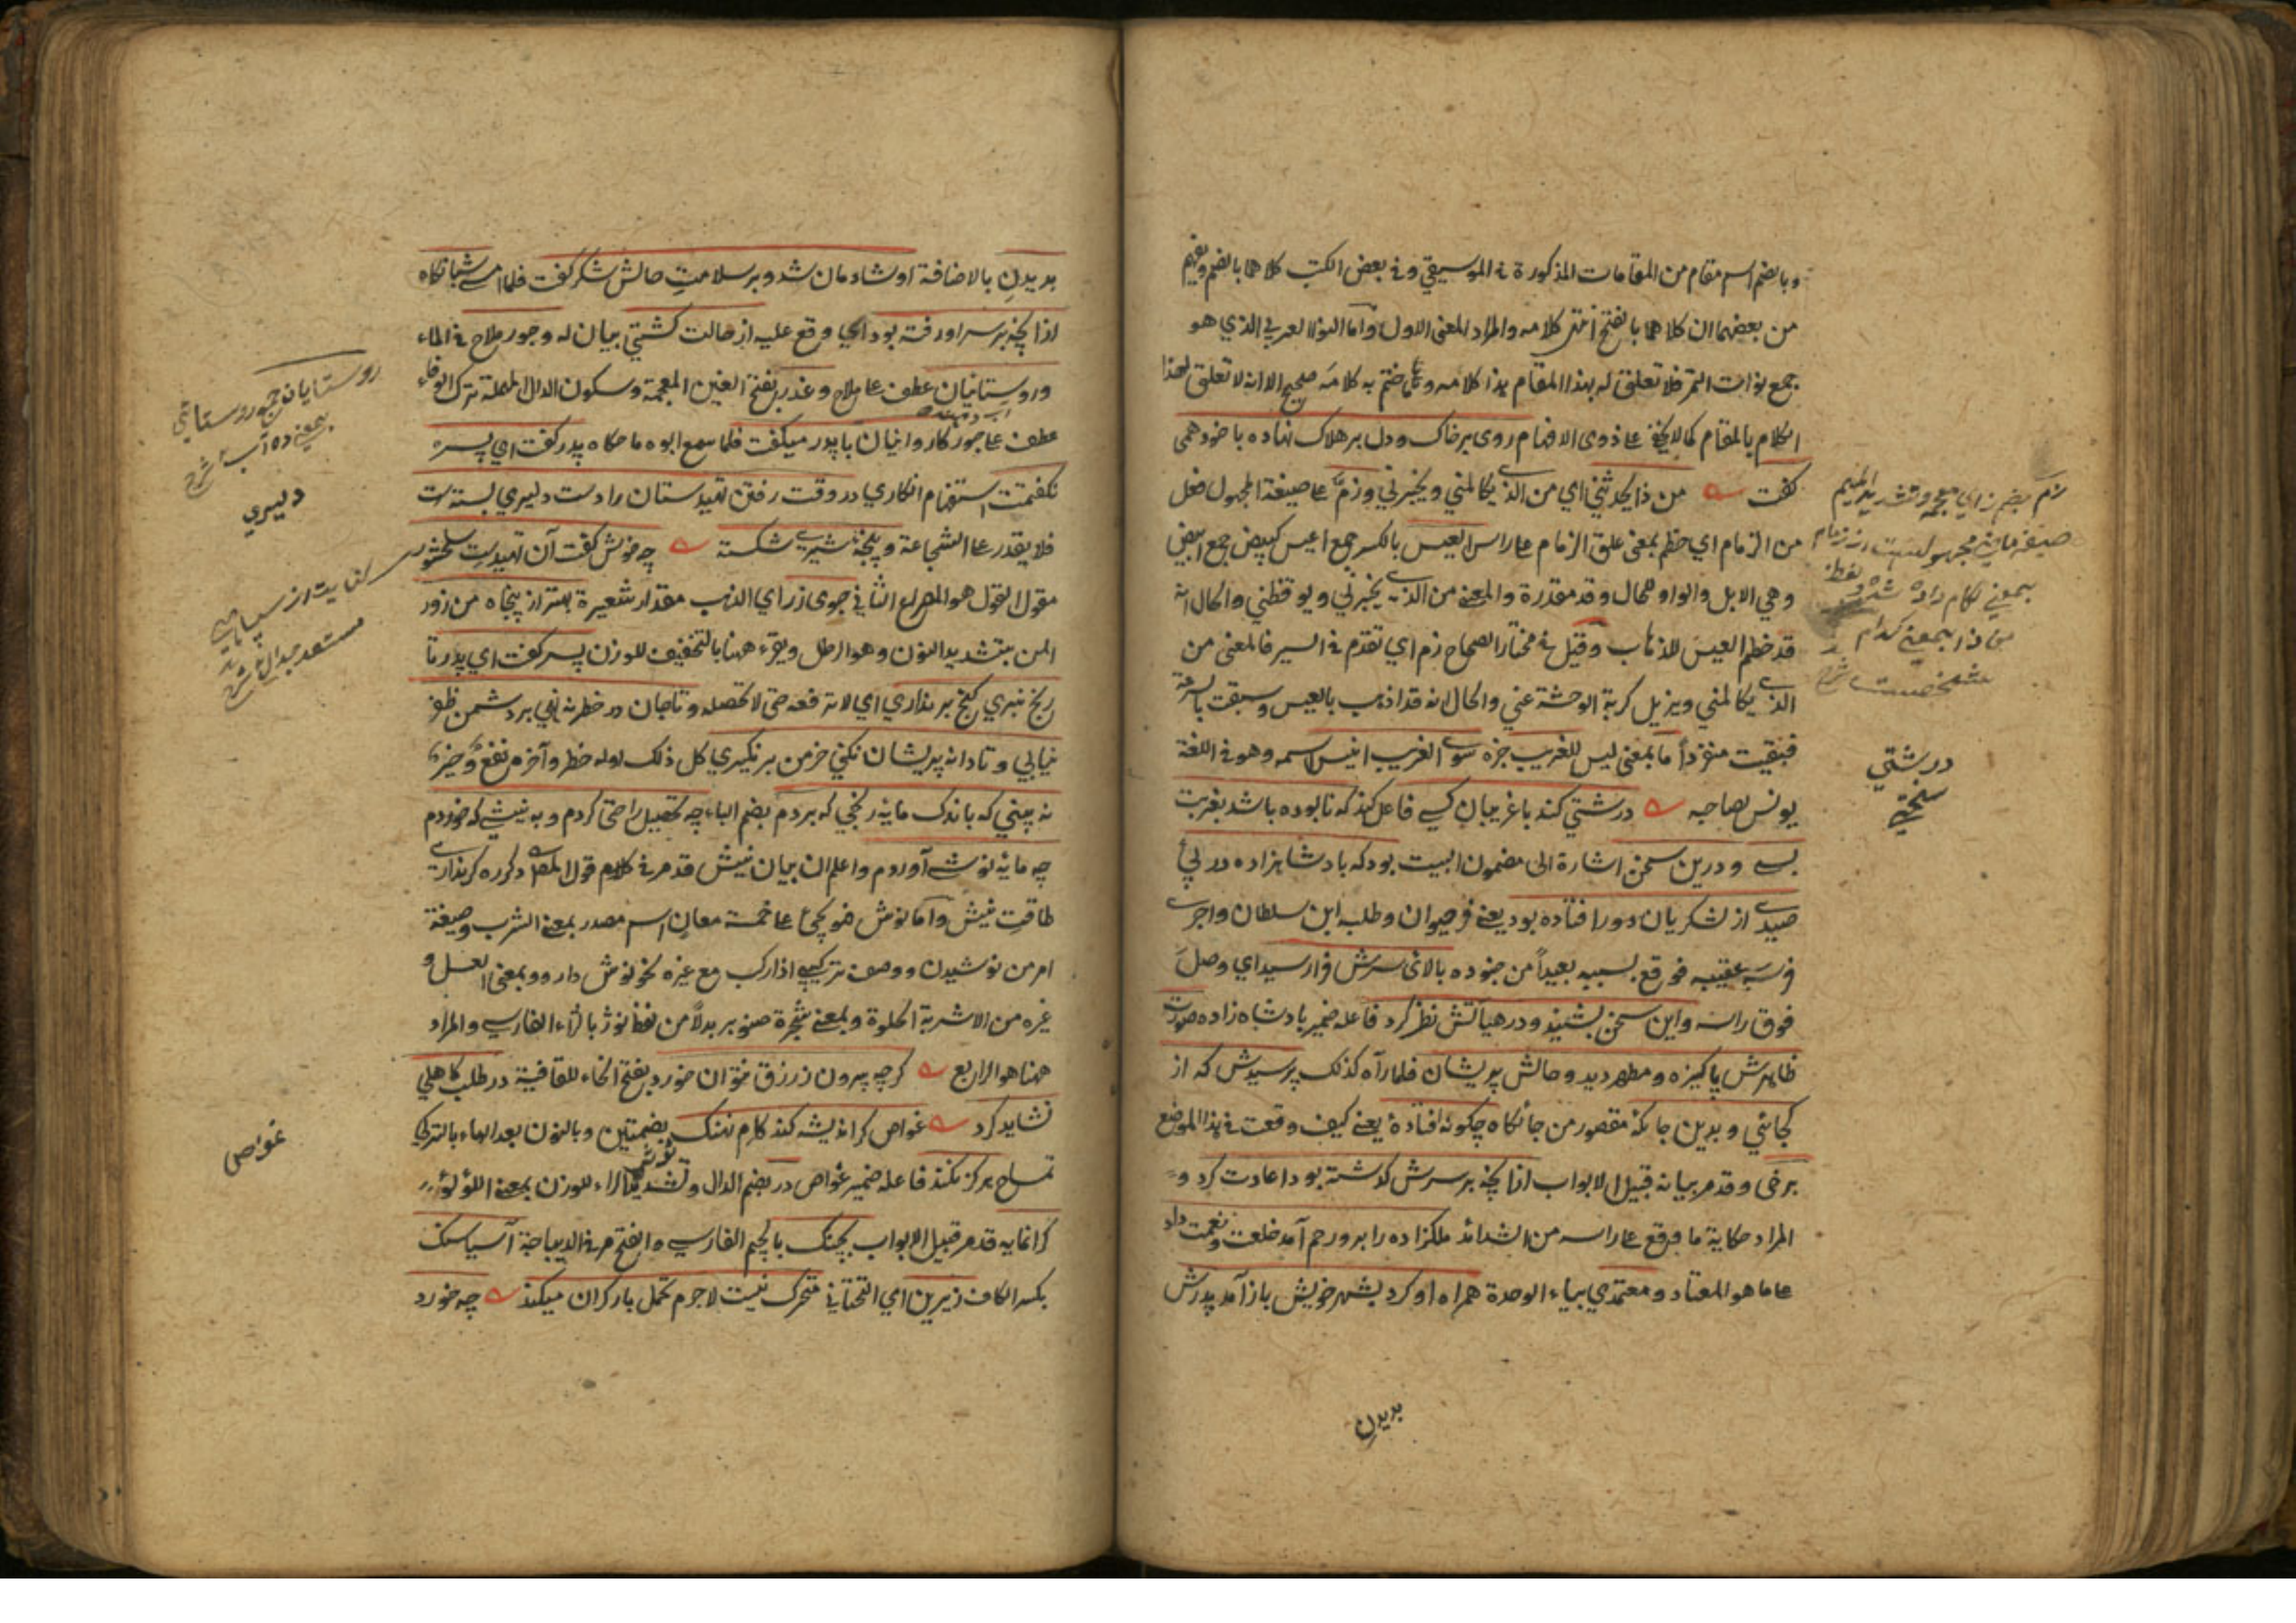 وبالضم اسم مقام من المقامات المذكورة في الموسيقي وفي بعض الكتب كلاهما بالضم ويفهم
من بعضها ان كلاهما بالفتح انتهى كلامه والمراد المعنى الاول وأما النوا العربي الذي هو
جمع نوات التمر فلا تعلق له بهذا المقام هذا كلامه وما ختم به كلامه صحيح الا انه لا تعلق لهذا
الكلام بالمقام كما لا يخفى على ذوى الافهام روى برخاك ودل بر هلاك نهاده با خود همى
كفت من ذا يحدثني اي من الذي يكالمني ويخبرني وزمّ على صيغة المجهول فعل
من الزمام اي خطم بمعنى علق الزمام على راس العيس بالكسر جمع اعيس كبيض جمع ابيض
وهي الابل والواو للحال وقد مقدرة والمعنى من الذي يخبرني ويوقظني والحال انه
قد خطم العيس للذهاب وقيل في مختار الصحاح زم اي تقدم في السير فالمعنى من
الذي يكالمني ويزيل كربة الوحشة عني والحال انه قد اذهب بالعيس وسبقت بالسرعة
فبقيت منفرداً ما بمعنى ليس للغريب خبره سوى الغريب انيس اسمه وهو في اللغة
يونس بصاحبه درشتي كند با غريبان كسي فاعل كند كه نابوده باشد بغربت
بسي ودرين سخن اشارة الى مضمون البيت بود كه بادشاهزاده در پئ
صيدي از لشكريان دور افتاده بود يعني فر حيوان وطلبه ابن سلطان واجرى
فرسه عقيبه فوقع بسببه بعيداً من جنوده بالاى سرش فرا رسيد اي وصل
فوق راسه واين سخن بشنيد ودر هيأتش نظر كرد فاعله ضمير بادشاه زاده صورت
ظاهرش پاكيزه ومطهر ديد وحالش پريشان فلما رآه كذلك پرسيدش كه از
كجائي وبدين جايكه مقصور من جايكاه چكونه افتادۀ يعني كيف وقعت في هذا الموضع
برخى وقد مر بيانه قبيل الابواب از آنچه بر سرش كذشته بود اعادت كرد و
المراد حكاية ما وقع على راسه من الشدائد ملكزاده را برو رحم آمد خلعت ونعمت داد
على ما هو المعتاد ومعتمدي بياء الوحدة همراه او كرد بشهر خويش باز آمد پدرش
بديدن
زم بضم زاي معجمه وتشديد الميم
صيغه ماضى مجهولست از زمام
بمعني لكام داده شد
من ذا بمعني كدام
شخصيست
درشتي
سختي
بديدنِ بالاضافة او شادمان شد وبر سلامتِ حالش شكر كفت فلما امسى شبانكاه
از آنچه بر سر او رفته بود اي وقع عليه از حالت كشتي بيان له وجور ملاح في الماء
وروستائيان عطف على ملاح وغدر بفتح الغين المعجمة وسكون الدال المهملة ترك الوفاء
عطف على جور كاروانيان با پدر ميكفت فلما سمع ابوه ما حكاه پدر كفت اي پسر
نكفتمت استفهام انكاري در وقت رفتن تهيدستان را دست دليري بسته است
فلا يقدر على الشجاعة وپنجۀ شيري شكسته چه خوش كفت آن تهيدست سلحشور
مقول القول هو المصراع الثاني جوى زر اي الذهب مقدار شعيرة بهتر از پنجاه من زور
المن بتشديد النون وهو الرطل ويقرء ههنا بالتخفيف للوزن پسر كفت اي پدر تا
رنج نبري كنج برنداري اي لا ترفعه حتى لا تحصله وتا جان در خطر ننهي بر دشمن ظفر
نيابي وتا دانه پريشان نكني خرمن برنكيري كل ذلك اوله خطر وآخره نفع وخير
نه بيني كه باندك مايه رنجي كه بردم بضم الباء چه تحصيل راحتى كردم وبه نيشي كه خوردم
چه مايه نوشي آوردم واعلم ان بيان نيش قد مر في كلام قول المص دكر ره كر نداري
طاقت نيش وأما نوش فهو يجئ على خمسة معانٍ اسم مصدر بمعنى الشرب وصيغة
امر من نوشيدن ووصف تركيبي اذا ركب مع غيره نحو نوش دارو وبمعنى العسل و
غيره من الاشربة الحلوة وبمعنى شجرة صنوبر بدلاً من لفظ نوژ بالزاء الفارسي والمراد
ههنا هو الرابع كرچه بيرون زرزق نتوان خورد بفتح الخاء للقافية در طلب كاهلي
نشايد كرد غواص كر انديشه كند كام نهنك بضمتين وبالنون بعد الهاء بالتركي
تمساح هركز نكند فاعله ضمير غواص در بضم الدال وتشديد الراء للوزن بمعنى اللؤلؤ
كرانمايه قد مر قبيل الابواب بچنك بالجيم الفارسي والفتح مر في الديباجة آسياسنك
بكسر الكاف زيرين اي التحتاني متحرك نيست لاجرم تحمل بار كران ميكند چه خورد
روستايان جمع روستائي
بمعني ده
دليري
كنايت از سپاهي
مستعد جدال
غواص